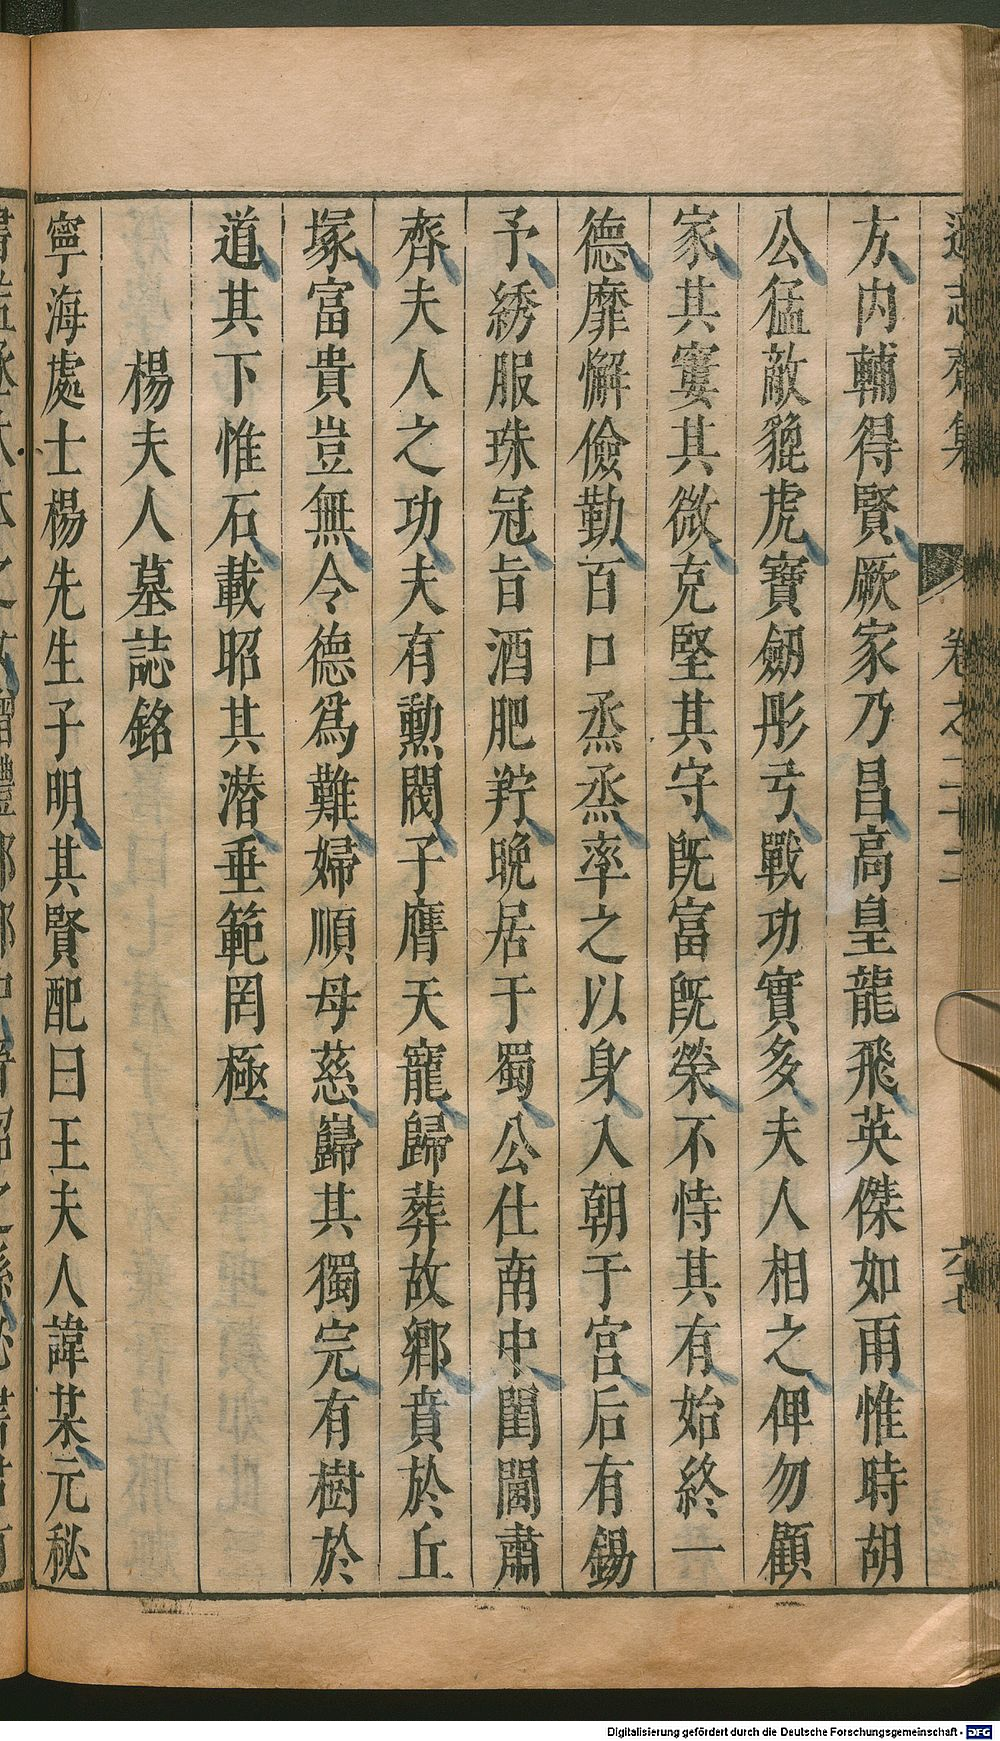 遜志齋集 卷之二十二 六七
方内輔得賢厥家乃昌高皇龍飛英傑如雨惟時胡
公猛敵貔虎寶劒彤弓戰功實多夫人相之俾勿顧
家其其寠其微克堅其守旣富旣榮不恃其有始終一
德靡懈儉勤百口烝烝率之以身入朝于宮后有錫
予綉服珠冠旨酒肥羜晚居于蜀公仕南中閨閫肅
齊夫人之功夫有勳閥子膺天寵歸葬故鄉賁於丘
塚富貴豈無令德爲難婦順母慈巋其獨完有樹於
道其下惟石載昭其潜垂範罔極
楊夫人墓誌銘
寧海處士楊先生子明其賢配曰王夫人諱某元秘
Digitalisierung gefördert durch die Deutsche Forschungsgemeinschaft - DFG